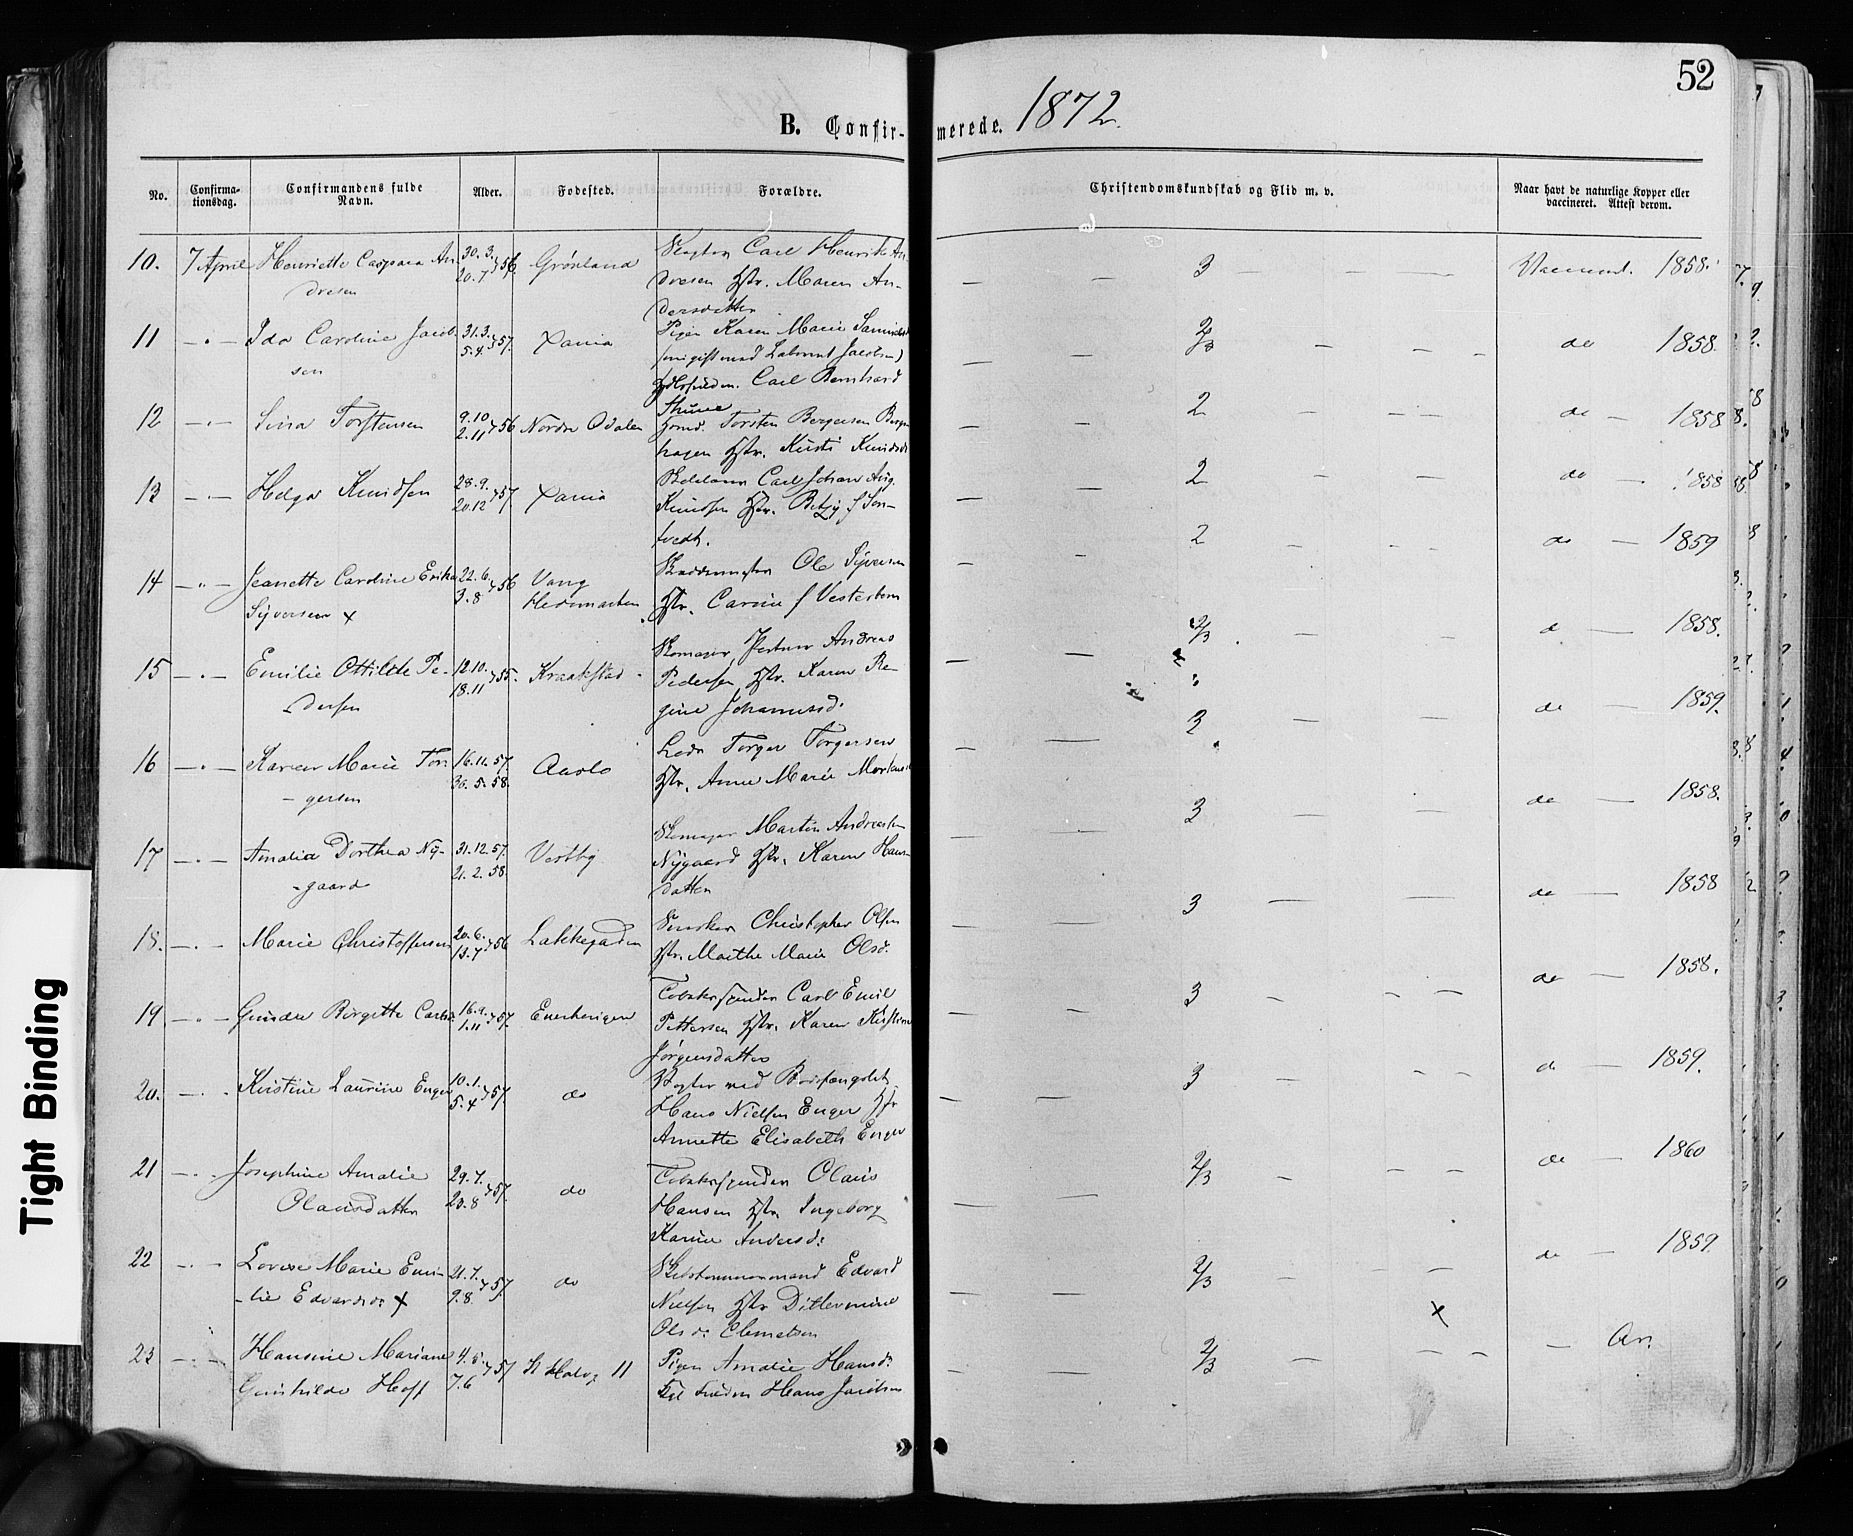 52
B. Confirmerede. 1872.
No. Confirmationsdag. Confirmandens fulde Navn. Alder. Fødested. Forældre. Christendomskundskab og Flid m. v. Naar havt de naturlige Kopper eller vaccineret. Attest derom.
10. 7 April Henriette Caspara An- 30. 3. 56 Grønland Carl Henrik An- 3 Vaccint. 1858.
dresen 20. 7 dresen Hstr. Maren An-
dersdatter
11 - " - Ida Caroline Jacob- 31. 3. 57. Xania Pigen Karen Marie 2/3 do 1858.
sen 5. 4. Jacobsen)
Carl Bernhard
Thune
12 - " - Lina Torstensen 9. 10 56 Nordre Odalen Torsten Bergersen Berger 2 do 1858
2. 11 hagen Hstr. Kirsti Knudsd
13 - " - Helga Knudsen 28. 9. 57. Xania Carl Johan Aug. 2 do 1858
20. 12 Knudsen Hstr. Betzy f
tvedt.
14 - " - Jeanette Caroline Erika 22. 6. 56 Vang Ole Syversen 2 do 1859
Syversen x 3. 8 Hedemarken Hstr. Carine f
15 - " - Emilie Ottilde Pe- 12. 10. 55. Kraakstad Skomager Andreas 2/3 d 1858.
dersen 18. 11 Pedersen Hstr. Karen Re-
gine Johannesd.
16 - " - Karen Marie Tor- 16. 11. 57. Aaslo Torger Torgersen 3 do 1859.
- gersen 30. 5. 58. Hstr. Anne Marie
17 - " - Amalia Dorthea Ny- 31. 12. 57. Vestby Skomager Martin Andreasen 3 do 1858.
- gaard 21. 2. 58. Nygaard Hstr. Karen Hans-
datter
18. - " - Marie Christoffersen 20. 6. 56 Lakkegaden Snedker Christopher Olsen 3 do 1858
13. 7 Hstr. Marthe Marie Olsd.
19 - " - Birgitte 16. 9. 57. Enerhaugen Tobakspinder Carl Emil 3 do 1858.
1. 11 Pettersen Hstr. Karen Kristine
Jørgensdatter
20. - " - Kristine Laurine Enger 10. 1. 57. do Vogter ved Bodsfængslet 3 d 1859.
5. 4 Hans Nielsen Enger
Annette Elisabeth Enger
21 - " - Josephine Amalie 29. 7. 57. do Tobakspinder Olaus 2/3 do 1860
Olausdatter 23. 8 Hansen Hstr. Ingeborg
Karine Andersd:
22 - " - Lovise Marie Emi- 21. 7. 57. do Skibstømmermand Edvard 2/3 do 1859.
- lie x 9. 8. Nielsen Hstr
x
23 - " - Hansine Mariane 4. 5. 57 11 Pigen Amalie Hansd: 2/3 - Arr.
Gunhilde Hoff 7. 6 Hans Jacobsen
Tight Binding